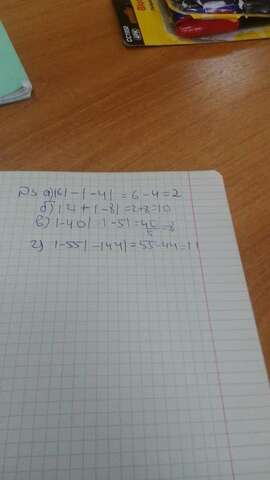 №3 а) |6| - |-4| = 6-4=2
б) |2| + |-8| =2+8=10
в) |-40| : |-5| = 40/5 = 8
г) |-55| - |44| = 55-44=11